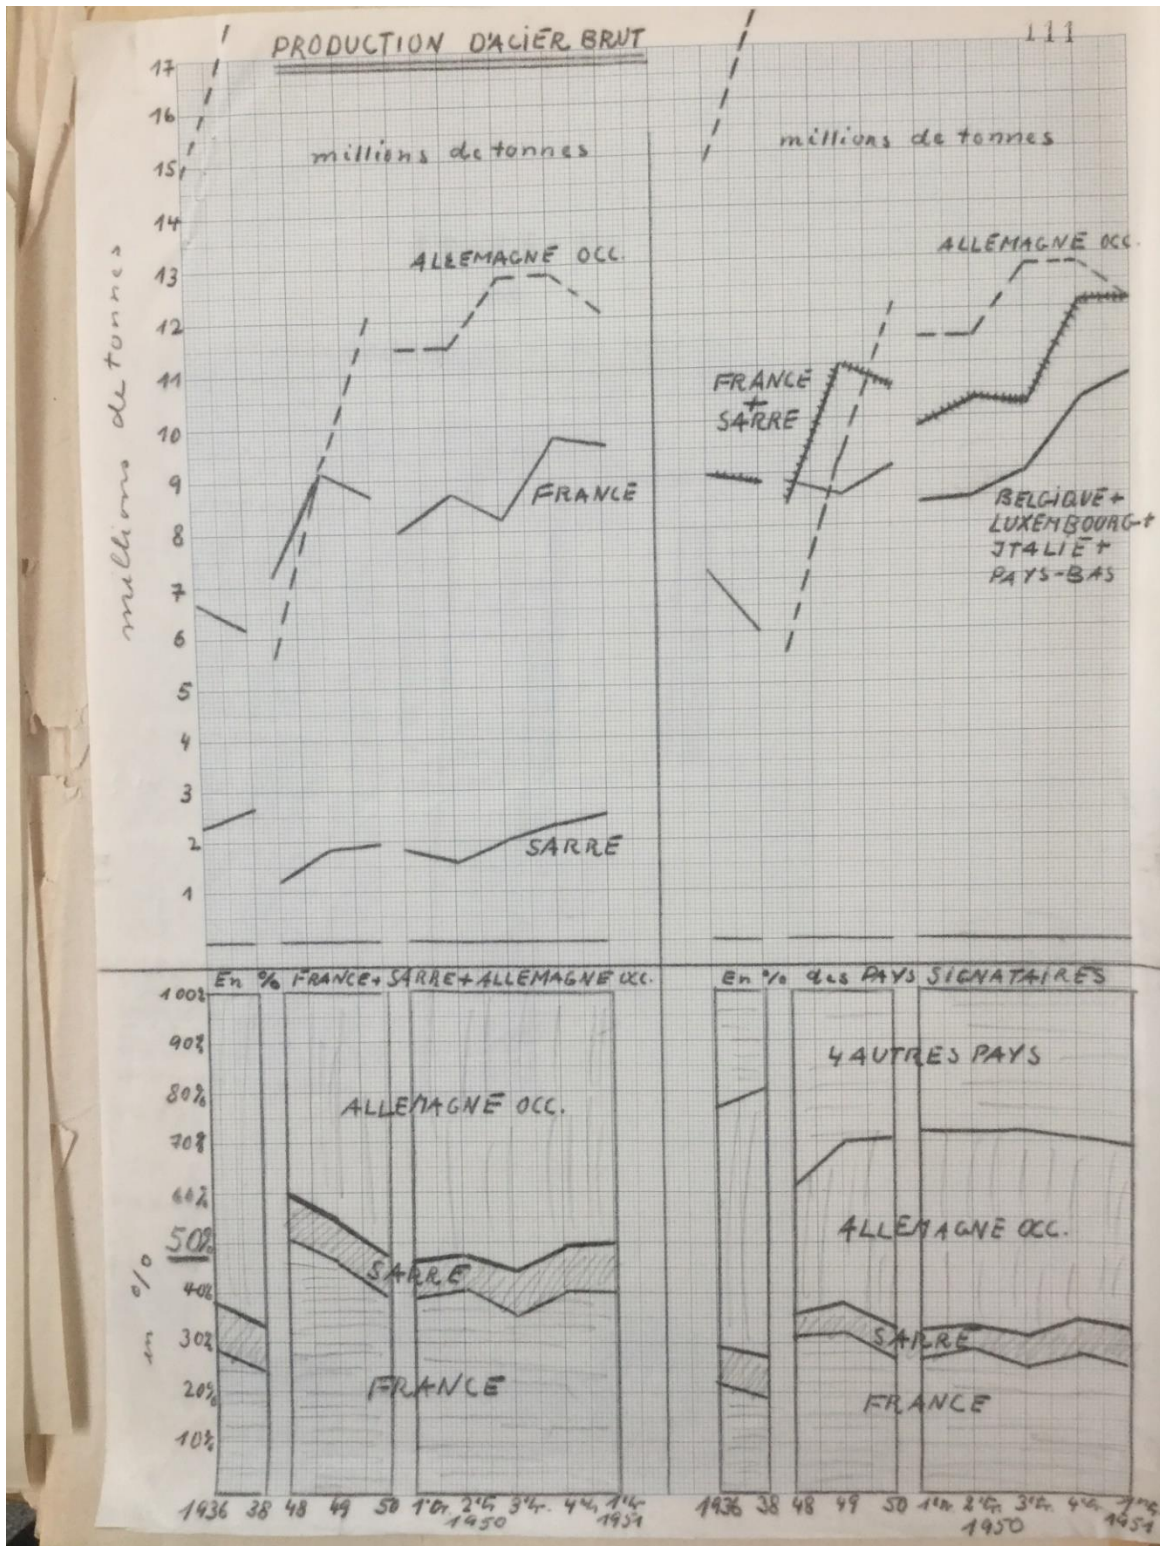 111
PRODUCTION D'ACIER BRUT
millions de tonnes
17
16
15
14
13
12
11
10
9
8
7
6
5
4
3
2
1
millions de tonnes
ALLEMAGNE OCC.
FRANCE
SARRE
millions de tonnes
ALLEMAGNE OCC.
FRANCE
+
SARRE
BELGIQUE +
LUXEMBOURG +
ITALIE +
PAYS-BAS
En % FRANCE + SARRE + ALLEMAGNE OCC.
in %
100%
90%
80%
70%
60%
50%
40%
30%
20%
10%
ALLEMAGNE OCC.
SARRE
FRANCE
1936 38 48 49 50 1ºtr. 2ºtr. 3ºtr. 4ºtr. 1ºtr.
1950 1951
En % des PAYS SIGNATAIRES
4 AUTRES PAYS
ALLEMAGNE OCC.
SARRE
FRANCE
1936 38 48 49 50 1ºtr. 2ºtr. 3ºtr. 4ºtr. 1ºtr.
1950 1951